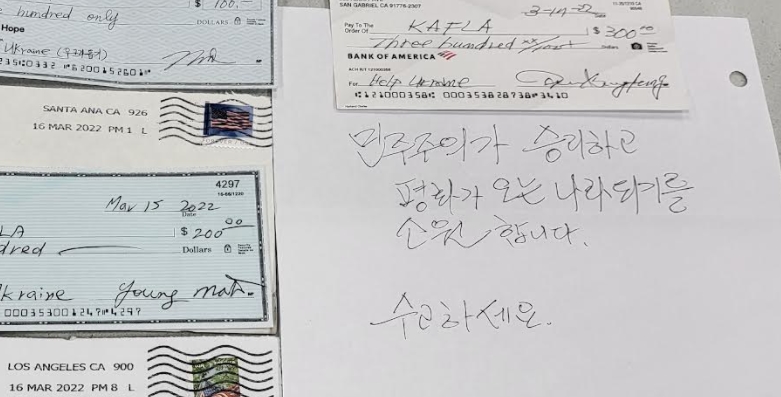 hundred only
$ 100.—
DOLLARS
Hope
Ukraine
SANTA ANA CA 926
16 MAR 2022 PM 1 L
FOREVER
4297
Mar 15 2022
Date
LA
$ 200 00
dred
Dollars
kraine Young
LOS ANGELES CA 900
16 MAR 2022 PM 8 L
SAN GABRIEL CA 91776-2307
Pay To The
Order Of KAFLA
$ 300 00
Three hundred xx/100
Dollars
BANK OF AMERICA
For Help Ukraine
민주주의가 승리하고
평화가 오는 나라되기를
소원 합니다.
수고하세요.